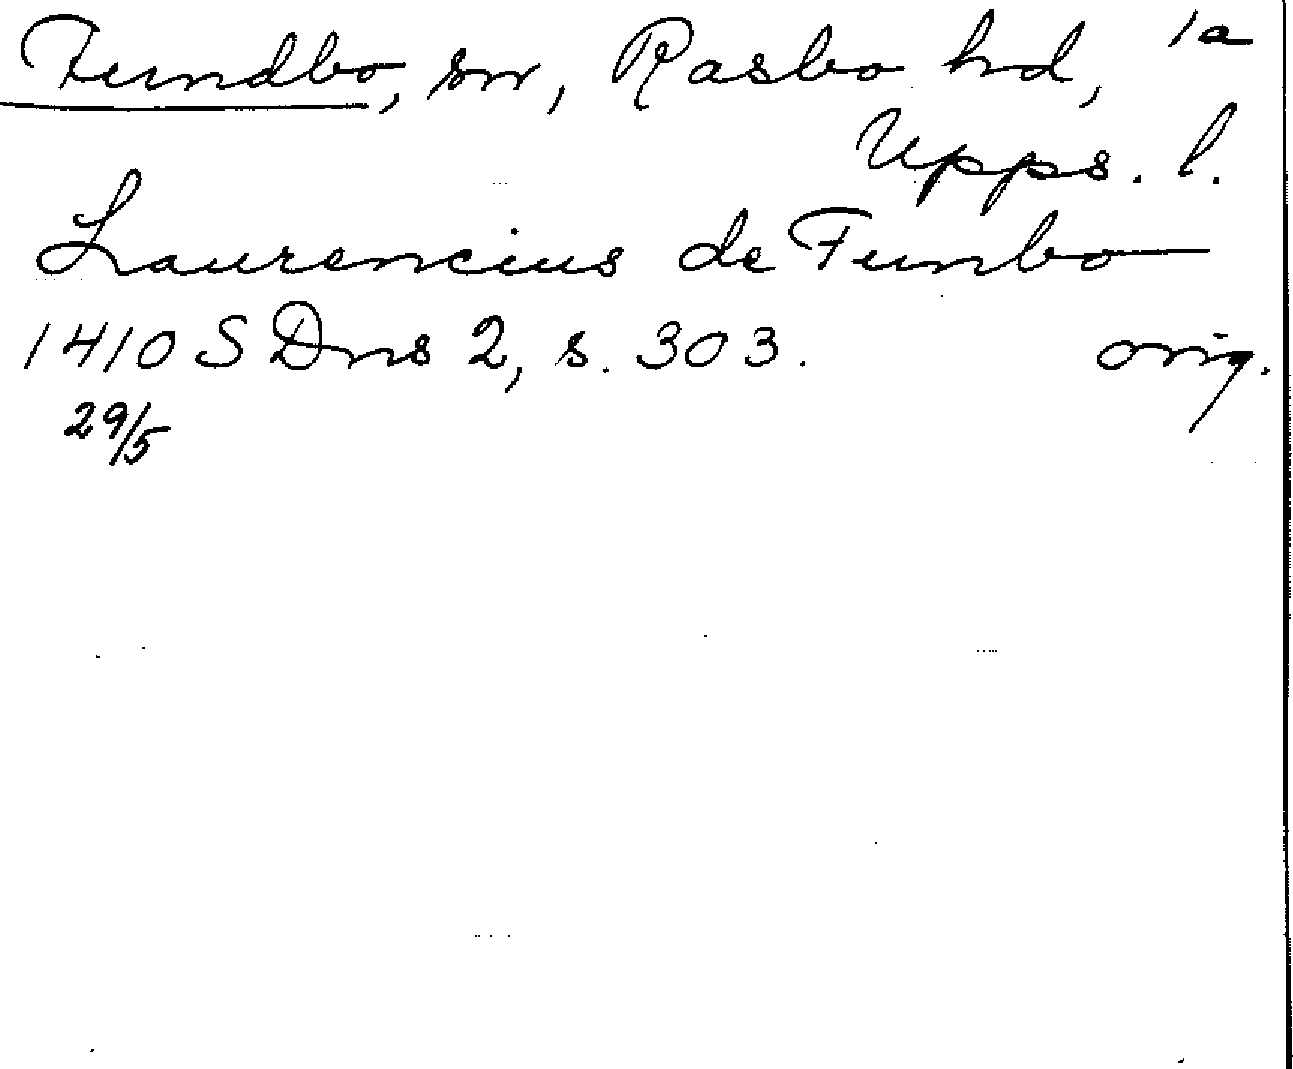 Fundbo, sn, Rasbo hd, 1a
Upps. l.
Laurencius de Funbo
1410 SDns 2, s. 303. orig.
29/5